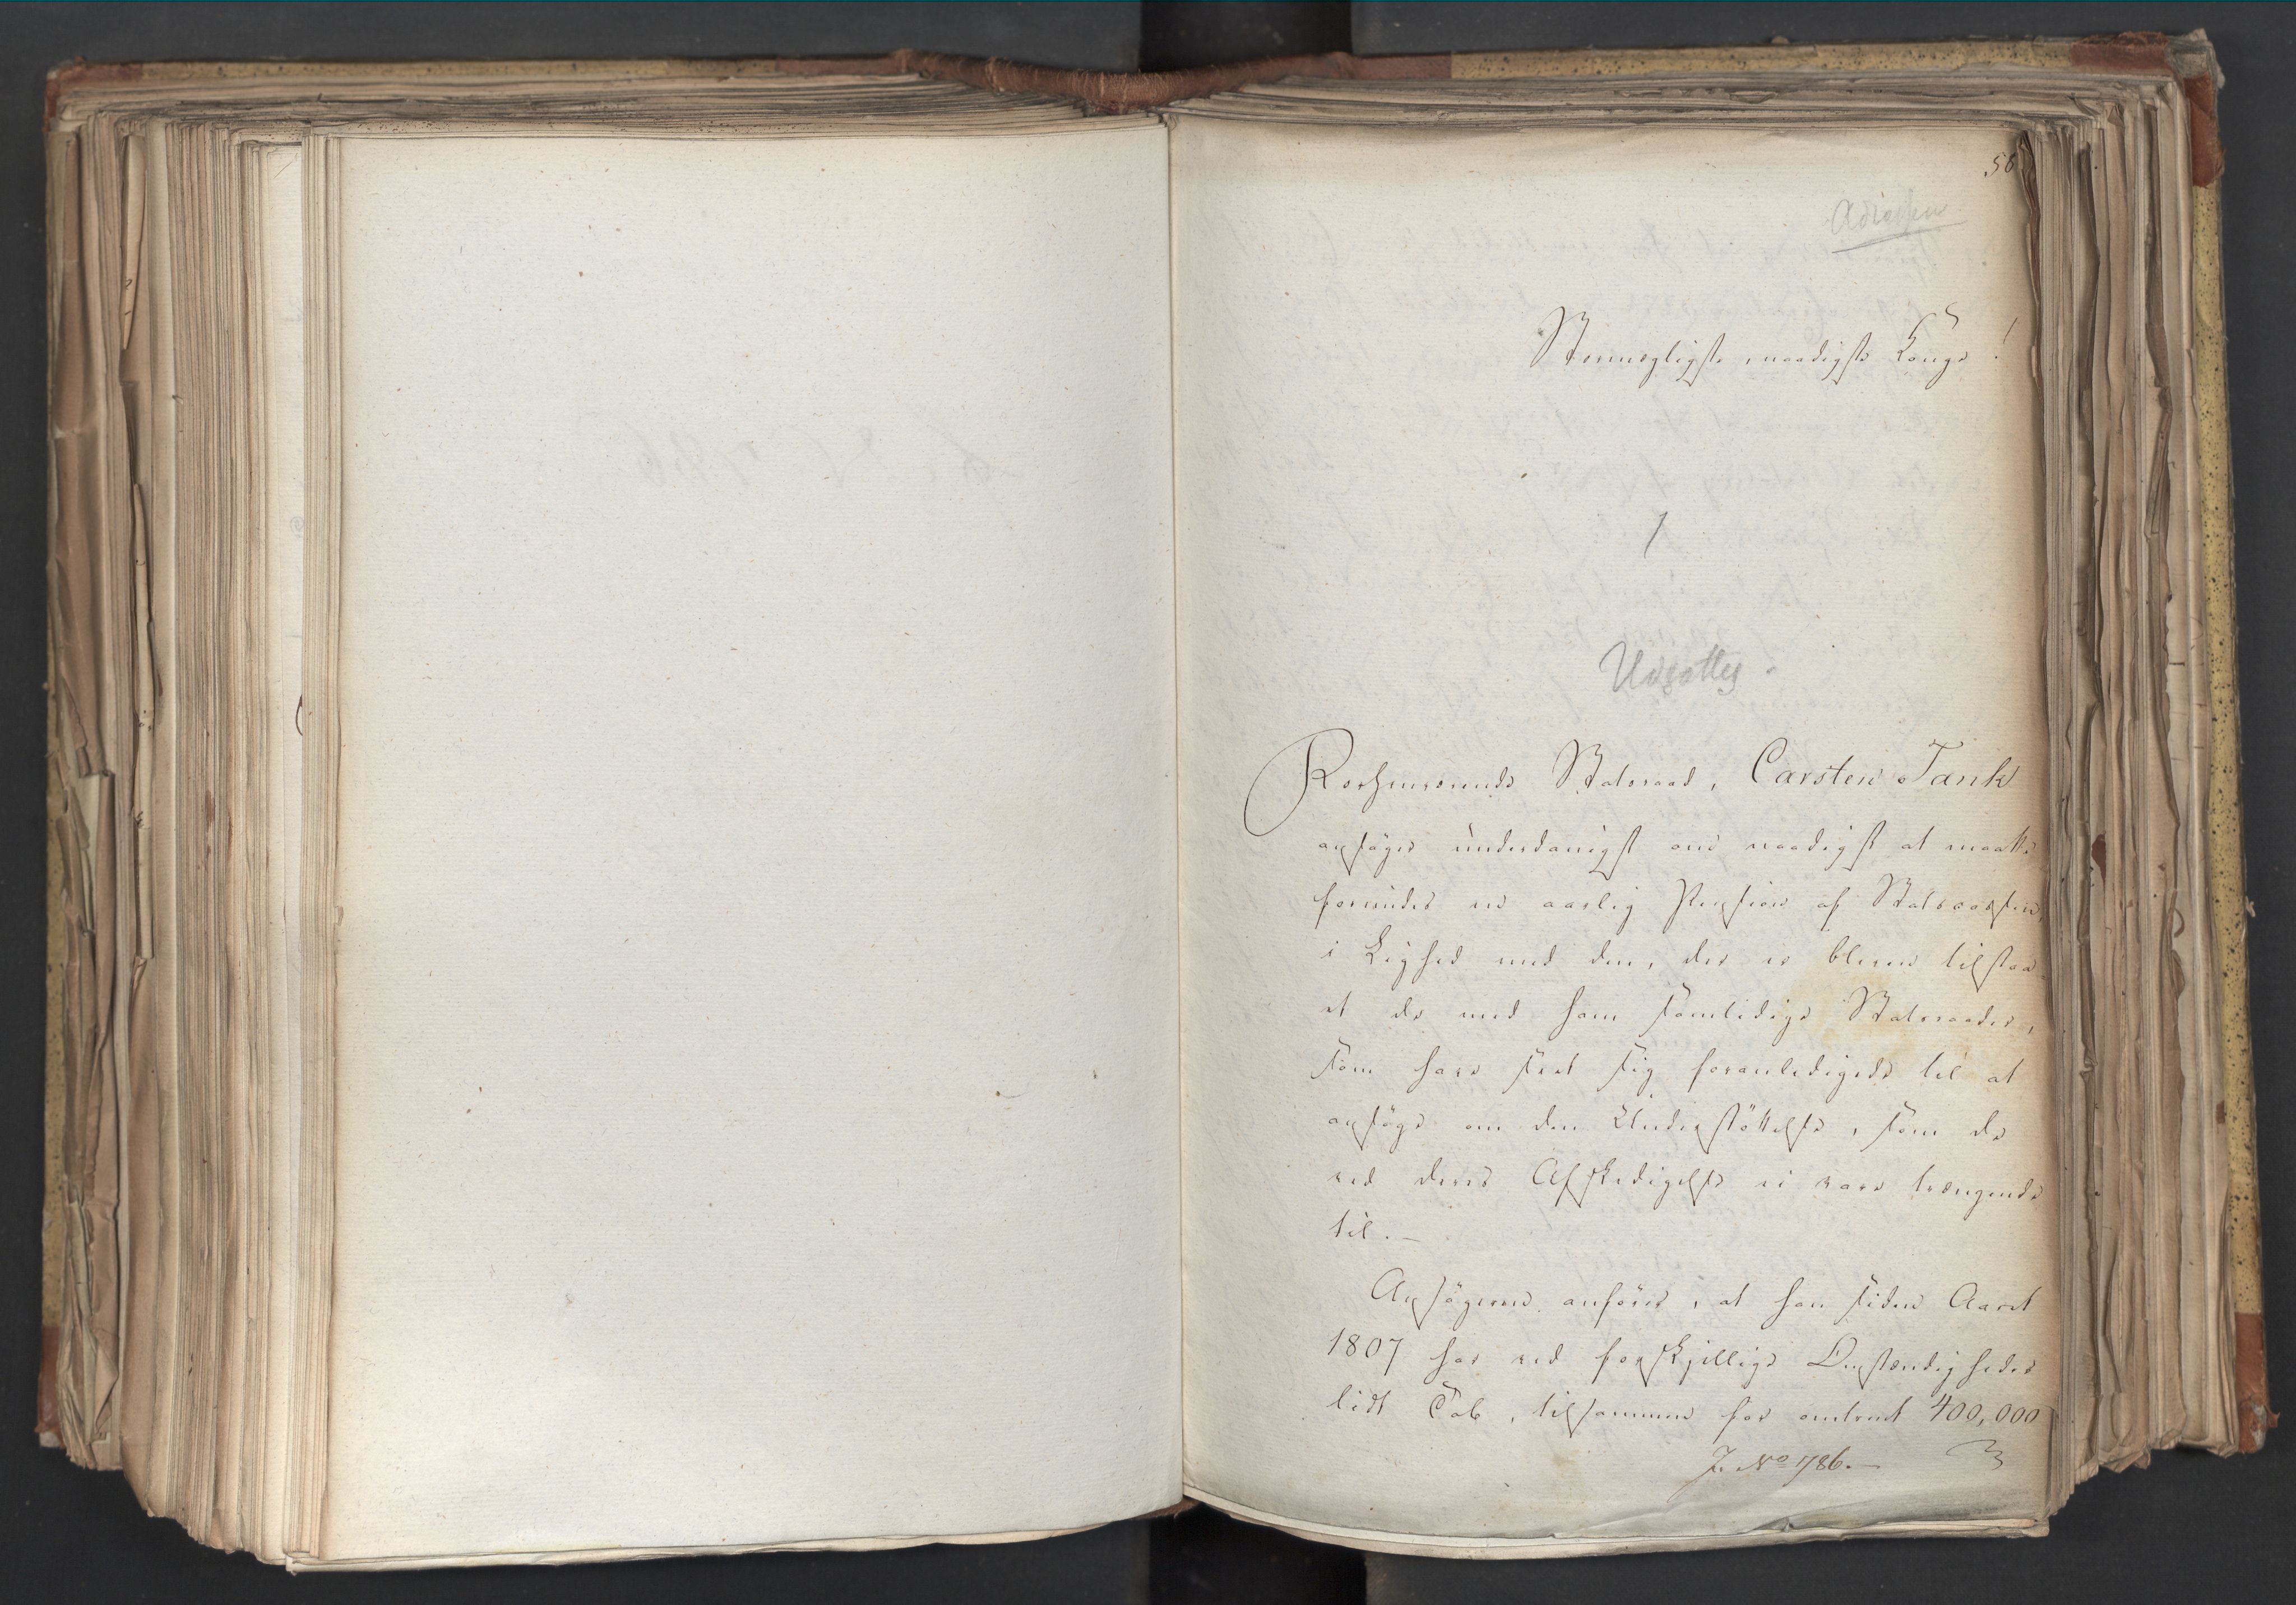 56
Adressen
Stormægtigste, naadigste Konge!
1
Udsættes.
Forhenværende Statsraad, Carsten Tank
ansøger underdanigst om naadigst at maatte
forundes en aarlig Pension af Statscassen,
i Lighed med den, der er bleven tilstaa-
et de med ham samtidige Statsraader,
som have seet sig foranledigede til at
ansøge om den Understøttelse, som de
ved deres Afskedigelse ei vare trængende
til.—
Ansøgeren anfører, at han siden Aaret
1807 har ved forskjellige Omstændigheder
lidt Tab, tilsammen for omtrent 400,000
J. No 786.—